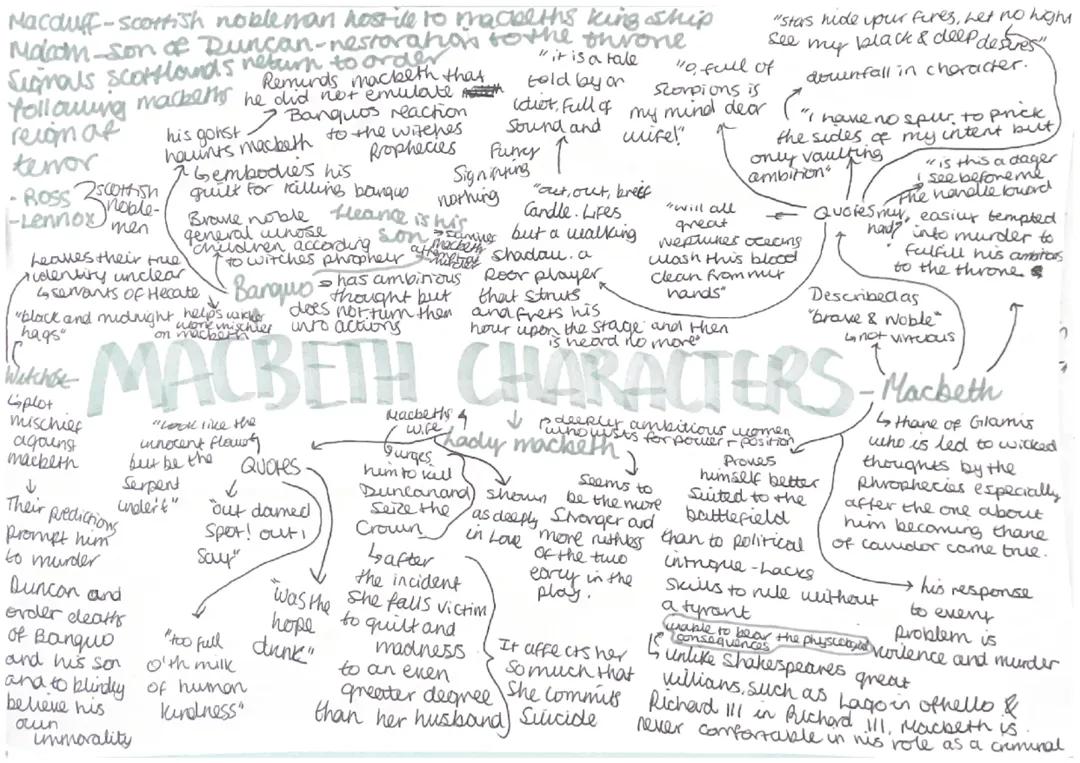 Macduff - scottish nobleman hostile to macbeths kingship
Malcom - son of Duncan - nestoration to the throne
Signals scottlands return to order
following macbeths
reign of
terror
- Ross
- Lennox
scottish
noble-
men
Reminds macbeth that
he did not emulate
Banquos reaction
to the witches
prophecies
his gohst
haunts macbeth
↳ embodies his
guilt for killing banquo
Brave noble
general whose
children according
to witches prophecy
fleance is his
son
→ survives
macbeths
attempt at
murder
Banquo
→ has ambitious
thought but
does not turn them
into actions
leaves their true
identity unclear
↳ servants of Hecate
"black and midnight
hags"
helps wake
work mischief
on macbeth
"it is a tale
told by an
idiot, full of
sound and
fury
Signifying
nothing
"out, out, breif
candle. Lifes
but a walking
shadow. a
Poor player
that struts
and frets his
hour upon the stage and then
is heard no more"
"O, full of
scorpions is
my mind dear
wife!"
"will all
great
neptunes oceans
wash this blood
clean from my
hands"
"stars hide your fires, Let no light
see my black & deep desires"
downfall in character.
"i have no spur, to prick
the sides of my intent but
only vaulting
ambition"
"is this a dager
i see before me
The handle toward
my
hand?"
Quotes
easily tempted
into murder to
fulfill his ambitions
to the throne
Described as
"brave & Noble"
↳ not virtuous
MACBETH CHARACTERS
- Macbeth
↳ thane of Glamis
who is led to wicked
thoughts by the
phrophecies especially
after the one about
him becoming thane
of cawdor came true.
→ his response
to every
problem is
violence and murder
Proves
himself better
suited to the
battlefield
than to political
intrigue - lacks
skills to rule without
a tyrant
unable to bear the physcological
consequences
↳ unlike Shakespeares great
villians, such as Iago in othello &
Richard III in Richard III. Macbeth is
never comfortable in his role as a criminal
Witches
↳ plot
mischief
against
macbeth
↓
Their predictions
prompt him
to murder
Duncan and
order deaths
of Banquo
and his son
and to blindly
believe his
own
immorality
Lady macbeth
Macbeths
wife
→ deeply ambitious women
who lusts for power + position
↳ urges
him to kill
Duncan and
seize the
Crown
↳ after
the incident
she falls victim
to guilt and
madness
to an even
greater degree
than her husband
It affects her
so much that
she commits
Suicide
shown
as deeply
in Love
Seems to
be the more
Stronger and
more ruthless
of the two
early in the
play.
QUOTES
"Look like the
innocent flower
but be the
Serpent
under't"
"out damed
Spot! out i
say"
"was the
hope
drunk"
"too full
o'th milk
of human
kindness"